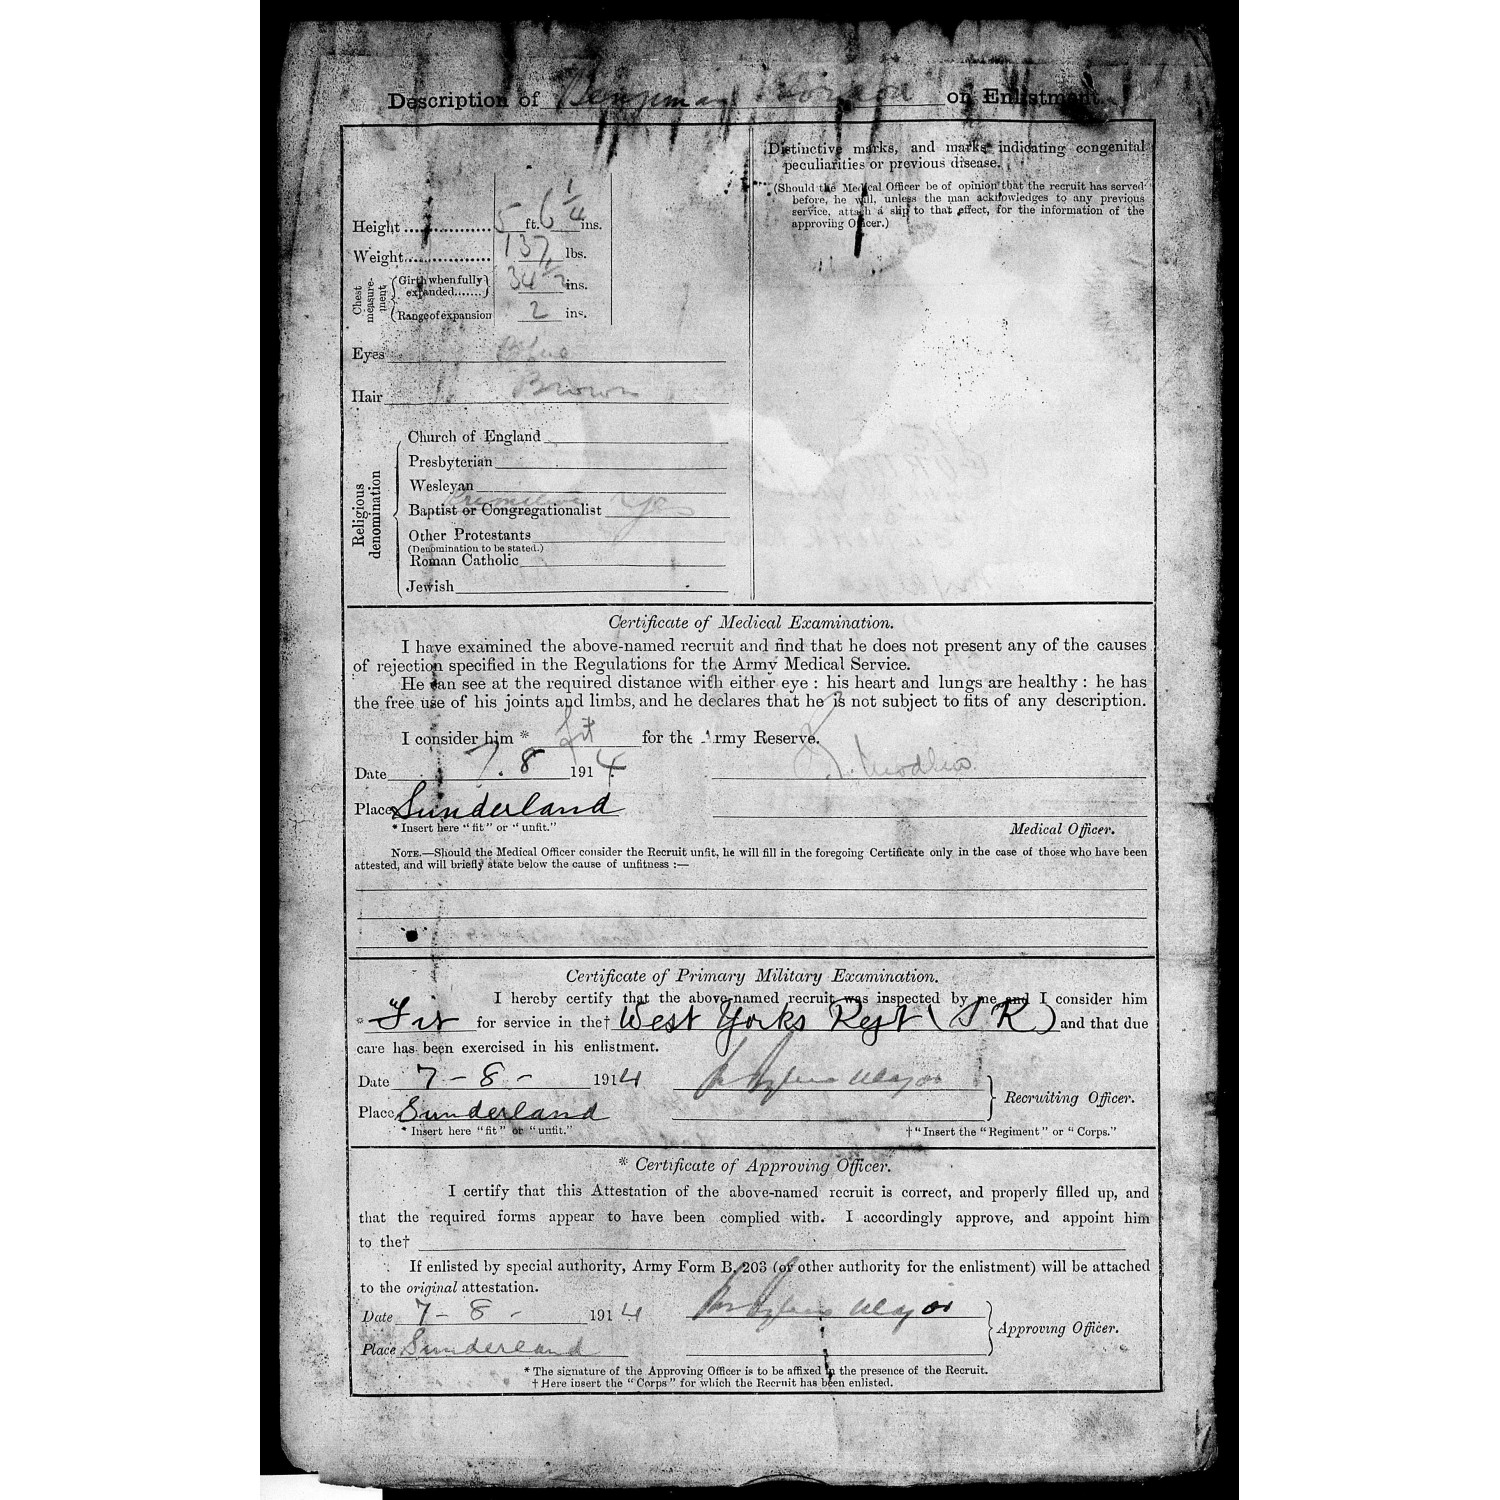 Description of Benjamin on Enlistment.
Distinctive marks, and marks indicating congenital
peculiarities or previous disease.
(Should the Medical Officer be of opinion that the recruit has served
before, he will, unless the man acknowledges to any previous
service, attach a slip to that effect, for the information of the
approving Officer.)
Height 5 ft. 6 1/4 ins.
Weight 137 lbs.
Chest measure-ment
Girth when fully expanded 34 1/2 ins.
Range of expansion 2 ins.
Eyes Blue
Hair Brown
Religious denomination
Church of England
Presbyterian
Wesleyan
Primitive Yes
Baptist or Congregationalist
Other Protestants
(Denomination to be stated.)
Roman Catholic
Jewish
Certificate of Medical Examination.
I have examined the above-named recruit and find that he does not present any of the causes
of rejection specified in the Regulations for the Army Medical Service.
He can see at the required distance with either eye : his heart and lungs are healthy : he has
the free use of his joints and limbs, and he declares that he is not subject to fits of any description.
I consider him * fit for the Army Reserve.
Date 7.8 1914
Place Sunderland
* Insert here "fit" or "unfit."
Medical Officer.
NOTE.—Should the Medical Officer consider the Recruit unfit, he will fill in the foregoing Certificate only in the case of those who have been
attested, and will briefly state below the cause of unfitness :—
Certificate of Primary Military Examination.
I hereby certify that the above-named recruit was inspected by me and I consider him
* Fit for service in the† West Yorks Regt (S R) and that due
care has been exercised in his enlistment.
Date 7-8- 1914 Major
Recruiting Officer.
Place Sunderland
* Insert here "fit" or "unfit."
† "Insert the "Regiment" or "Corps."
* Certificate of Approving Officer.
I certify that this Attestation of the above-named recruit is correct, and properly filled up, and
that the required forms appear to have been complied with. I accordingly approve, and appoint him
to the†
If enlisted by special authority, Army Form B. 203 (or other authority for the enlistment) will be attached
to the original attestation.
Date 7-8- 1914 Major
Approving Officer.
Place Sunderland
* The signature of the Approving Officer is to be affixed in the presence of the Recruit.
† Here insert the "Corps" for which the Recruit has been enlisted.